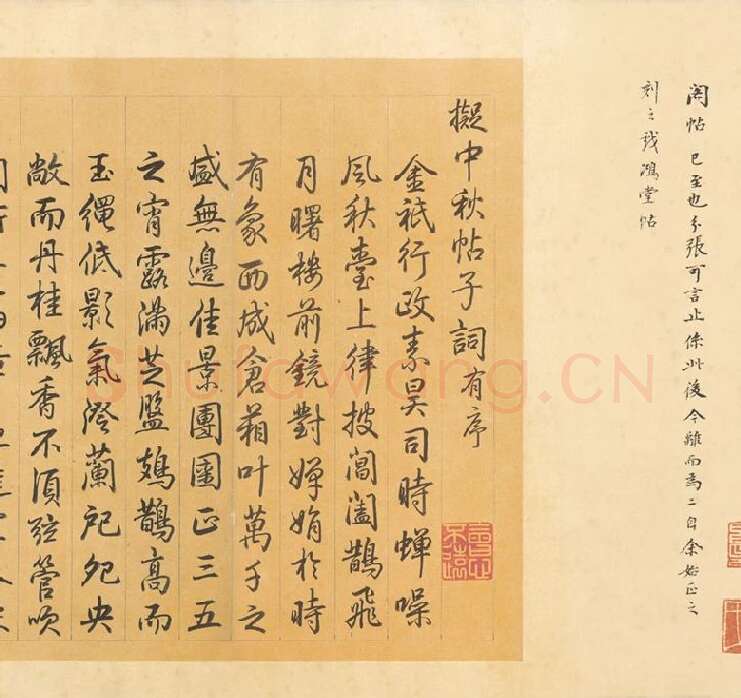 閣帖 已至也分張可言止係此後今離而為二自余始正之
刻之戏鴻堂帖
擬中秋帖子詞有序
金祇行政素昊司時蟬噪
風秋臺上律披閶闔鵲飛
月曙樓前鏡對嬋娟於時
有象西成倉箱叶萬千之
盛無邊佳景團圞正三五
之宵露滿芝盤鳷鵲高而
玉繩低影氣澄蘭戺夗央
敞而丹桂飄香不須弦管吹
Shufawang.CN